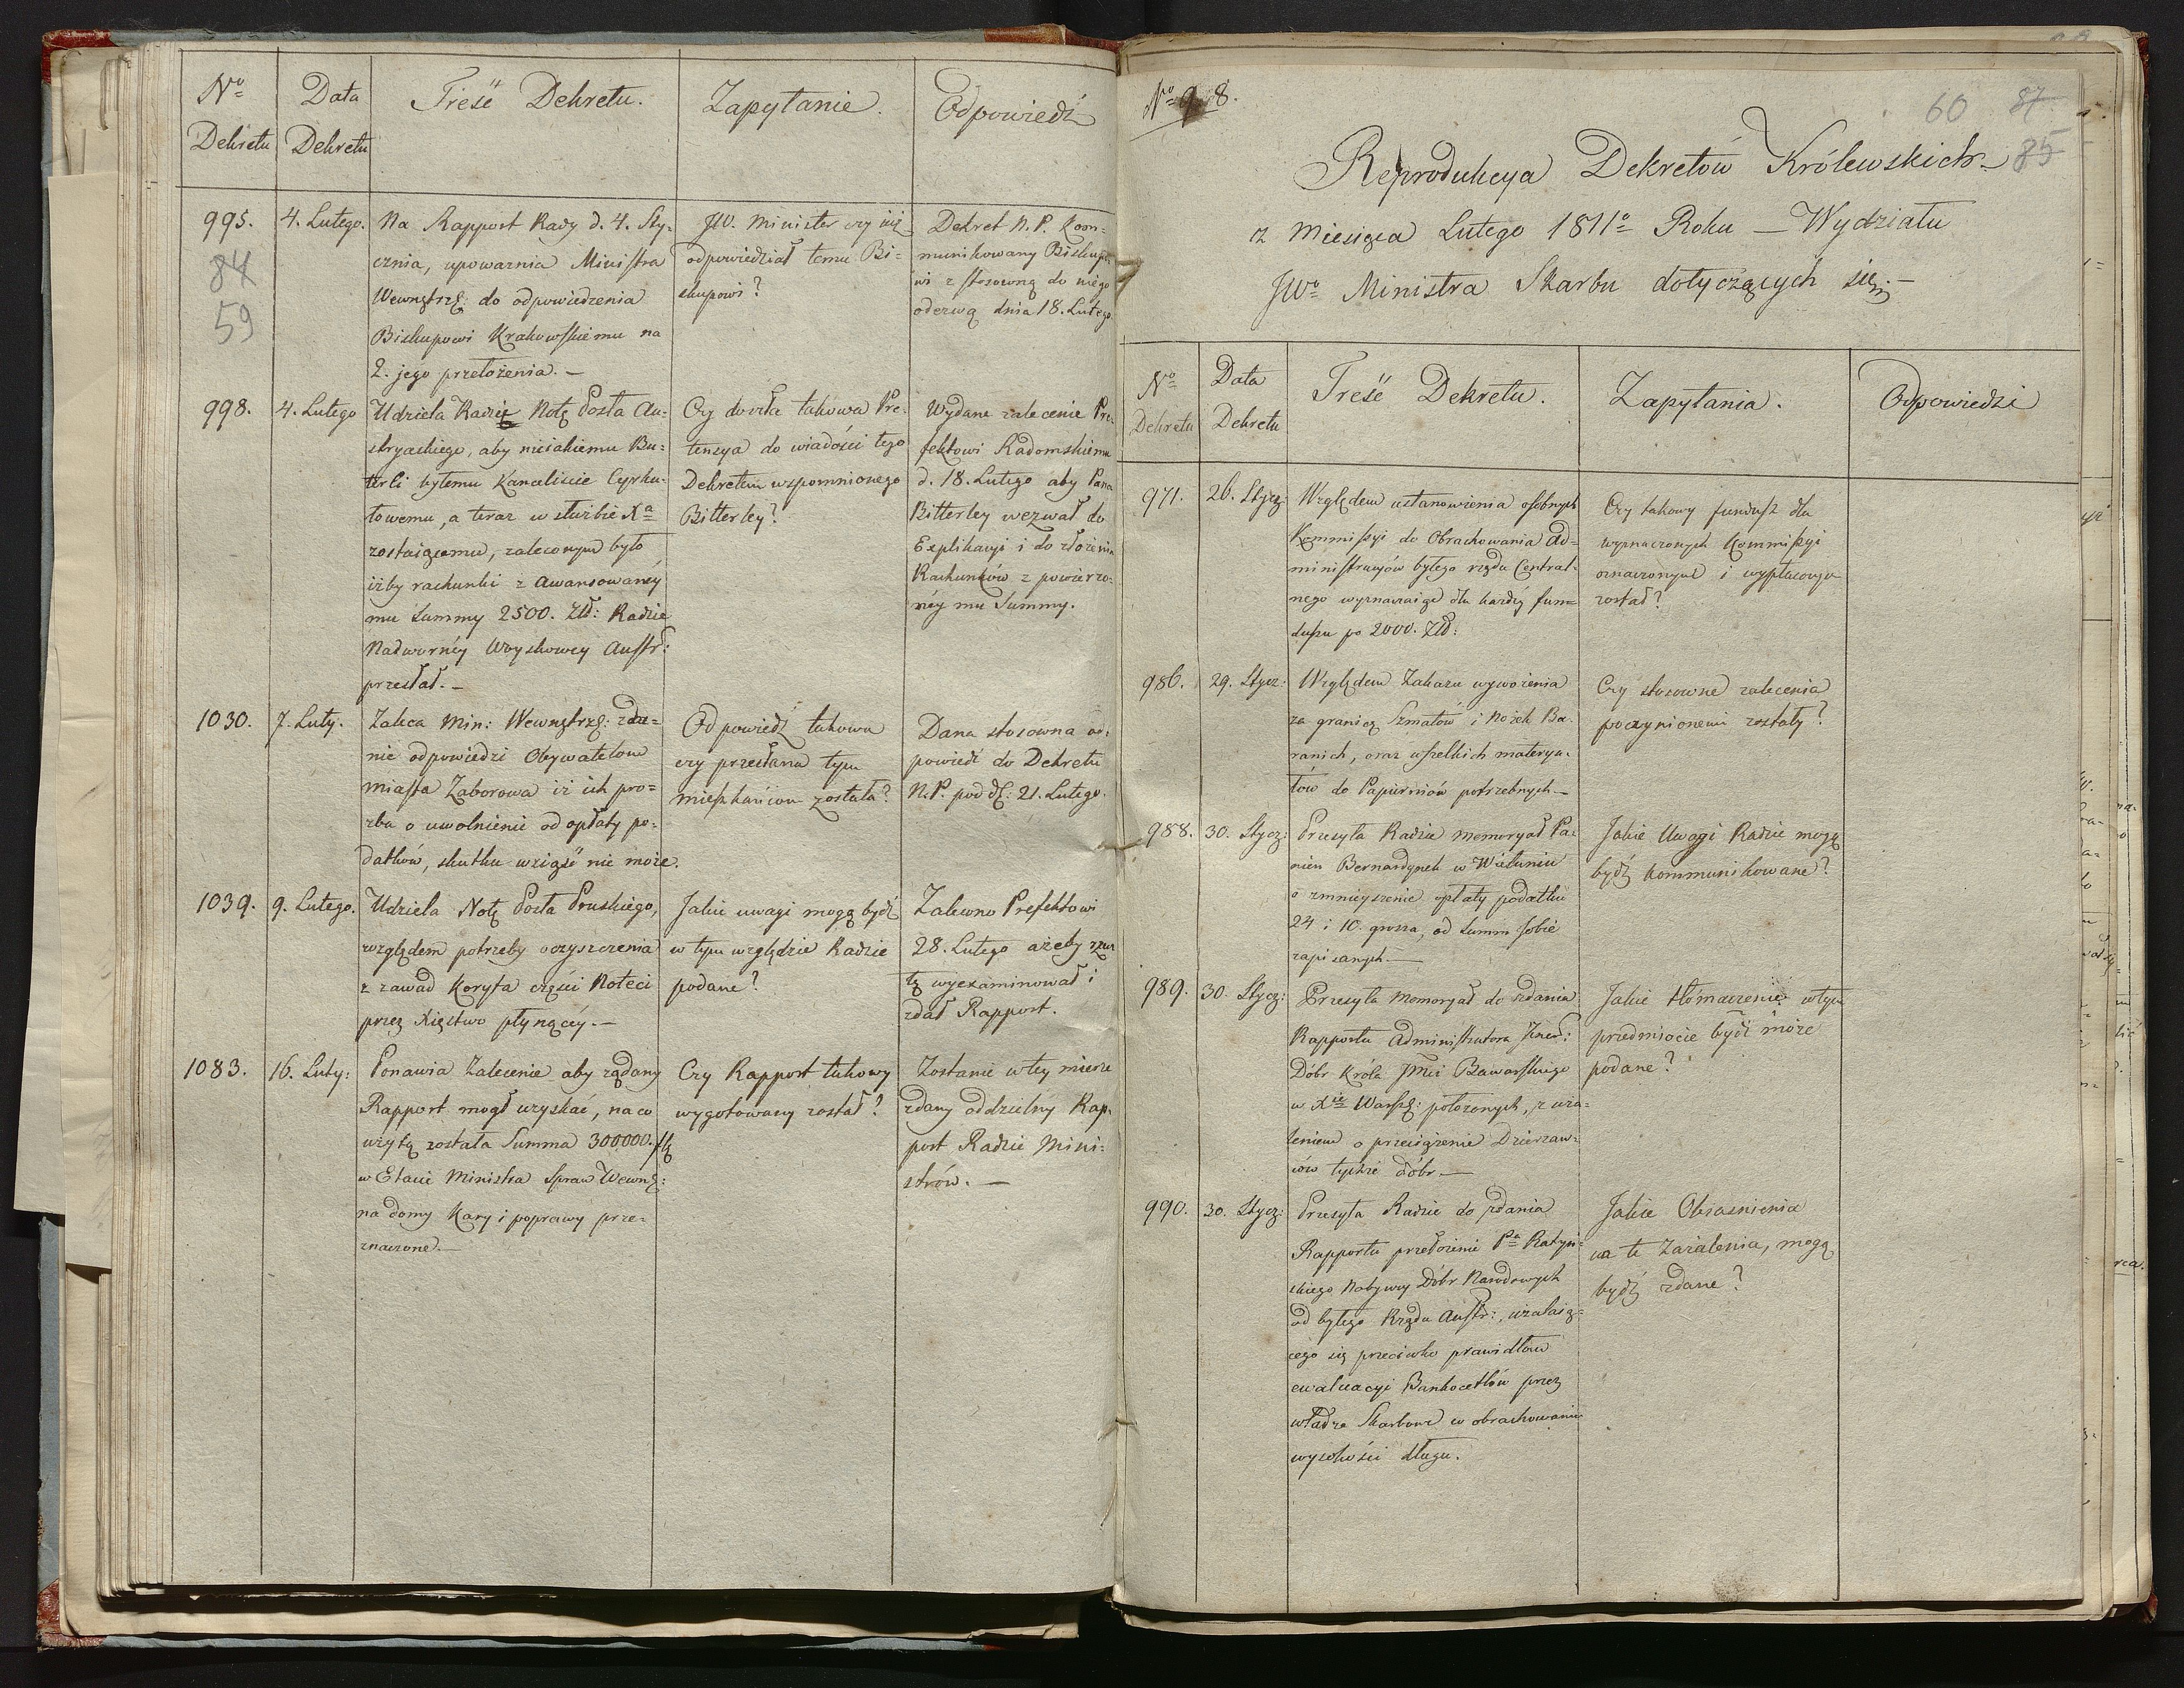 Nº
Dekretu
Data
Dekretu
Treść Dekretu.
Zapytanie.
Odpowiedź
995.
84
59
4. Lutego.
Na Rapport Rady d. 4. Sty=
cznia, upoważnia Ministra
Wewnętrz: do odpowiedzenia
Biskupowi Krakowskiemu na
2. jego przełożenia.—
JW. Minister czy już
odpowiedział temu Bi=
skupowi?
Dekret N. P. kom=
munikowany Biskupo
wi z stosowną do niego
odezwą dnia 18. Lutego
998.
4. Lutego
Udziela Radzie Notę Posła Au=
stryackiego, aby niejakiemu Bu=
terli byłemu Kanceliście Cyrku=
łowemu, a teraz w służbie Xa
zostaiącemu, zaleconym było
iżby rachunki z awansowaney
mu Summy 2500. Złł: Radzie
Nadwornéy Woyskowey Austr:
przesłał.—
Czy doszła takowa Pre=
tensya do wiadości tego
Dekretem wzpomnionego
Bitterley?
Wydane zalecenie Pre=
fektowi Radomskiemu
d. 18. Lutego aby Pana
Bitterley wezwał do
Explikacyi i do złożenia
Rachunków z powierzo=
néy mu Summy.
1030.
7. Luty.
Zaleca Min: Wewnętrz: zda=
nie odpowiedzi Obywatelom
miasta Zaborowa iż ich pro=
zba o uwolnienie od opłaty po=
datków, skutku wziąść nie może.
Odpowiedź takowa
czy przesłana tym
mieszkańcom została?
Dana stosowna od=
powiedź do Dekretu
N. P. pod d: 21. Lutego.
1039.
9. Lutego.
Udziela Notę Posła Pruskiego,
względem potrzeby oczyszczenia
z zawad Koryta części Noteci
przez Xięstwo płynącéy.—
Jakie uwagi mogą bydź
w tym względzie Radzie
podane?
Zalecono Prefektowi
28. Lutego ażeby rzecz
tę wyexaminował i
zdał Rapport.
1083.
16. Luty:
Ponawia Zalecenie aby żądany
Rapport mogł uzyskać, na co
użytą została Summa 300000. Złł
w Etacie Ministra Spraw Wewnę:
na domy Kary i poprawy prze=
znaczone.—
Czy Rapport takowy
wygotowany został?
Zostanie w tey mierze
zdany oddzielny Rap=
port Radzie Mini=
strów.—
Nº 98.
60
87
85
Reprodukcya Dekretów Królewskich
z Miesiąca Lutego 1811º Roku — Wydziału
JWº Ministra Skarbu dotyczących się.—
Nº
Dekretu
Data
Dekretu
Treść Dekretu.
Zapytania.
Odpowiedzi
971.
26. Stycz:
Względem ustanowienia osobnych
Kommissyi do Obrachowania Ad=
ministracyów byłego rządu Central=
nego wyznaczaiąc dla każdey fun=
duszu po 2000. Złł:
Czy takowy fundusz dla
wyznaczonych Kommissyi
oznaczonym i wypłaconym
został?
986.
29. Stycz:
Względem Zakazu wywożenia
za granicę Szmatów i Nożek Ba=
ranich, oraz wszelkich materya=
łów do Papierniów potrzebnych—
Czy stosowne zalecenia
poczynionemi zostały?
988.
30. Stycz:
Przesyła Radzie memoryał Pa=
nien Bernardynek w Wieluniu
o zmnieyszenie opłaty podatku
24 i 10. grosza, od Summ sobie
zapisanych.—
Jakie Uwagi Radzie mogą
bydź kommunikowane?
989.
30. Stycz:
Przesyła Memoryał do zdania
Rapportu Administratora
Dóbr Króla JMci Bawarskiego
w Xie Warsz: położonych, z uża=
leniem o przeciążenie Dzierzaw=
ców tychże dóbr—
Jakie tłómaczenie w tym
przedmiocie bydź może
podane?
990.
30. Stycz:
Przesyła Radzie do zdania
Rapportu przełożenie Pa Ratyń=
skiego Nabywcy Dóbr Narodowych
od byłego Rządu Austr:, użalaią=
cego się przeciwko prawidłom
ewaluacyi Bankocetlów przez
władze Skarbowe w obrachowaniu
wysokości długu.
Jakie Obiaśnienia
na te Zażalenia, mogą
bydź zdane?